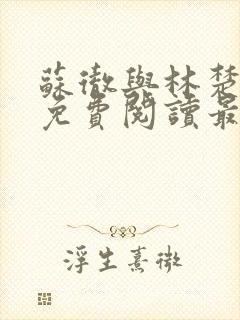 蘇徹與林楚
免費閱讀最
浮生熹微